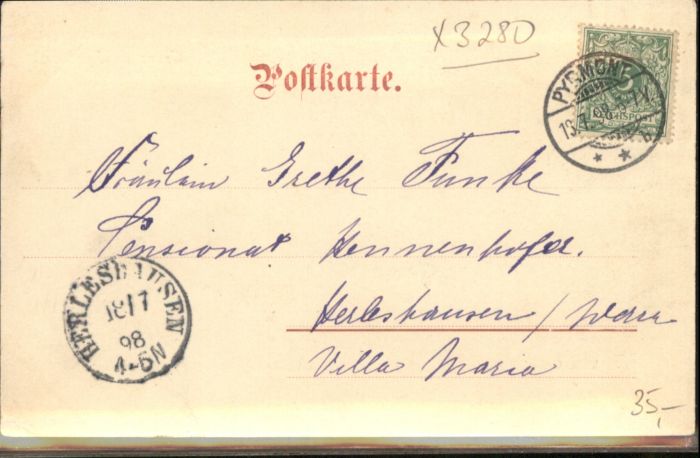 x 3280
Postkarte.
PYRMONT
REICHSPOST
Fräulein Grethe Funke
Pensionat Hennenhofer.
Herleshausen / Werra
Villa Maria
HERLESHAUSEN
18 7
98
4-5N
35,-